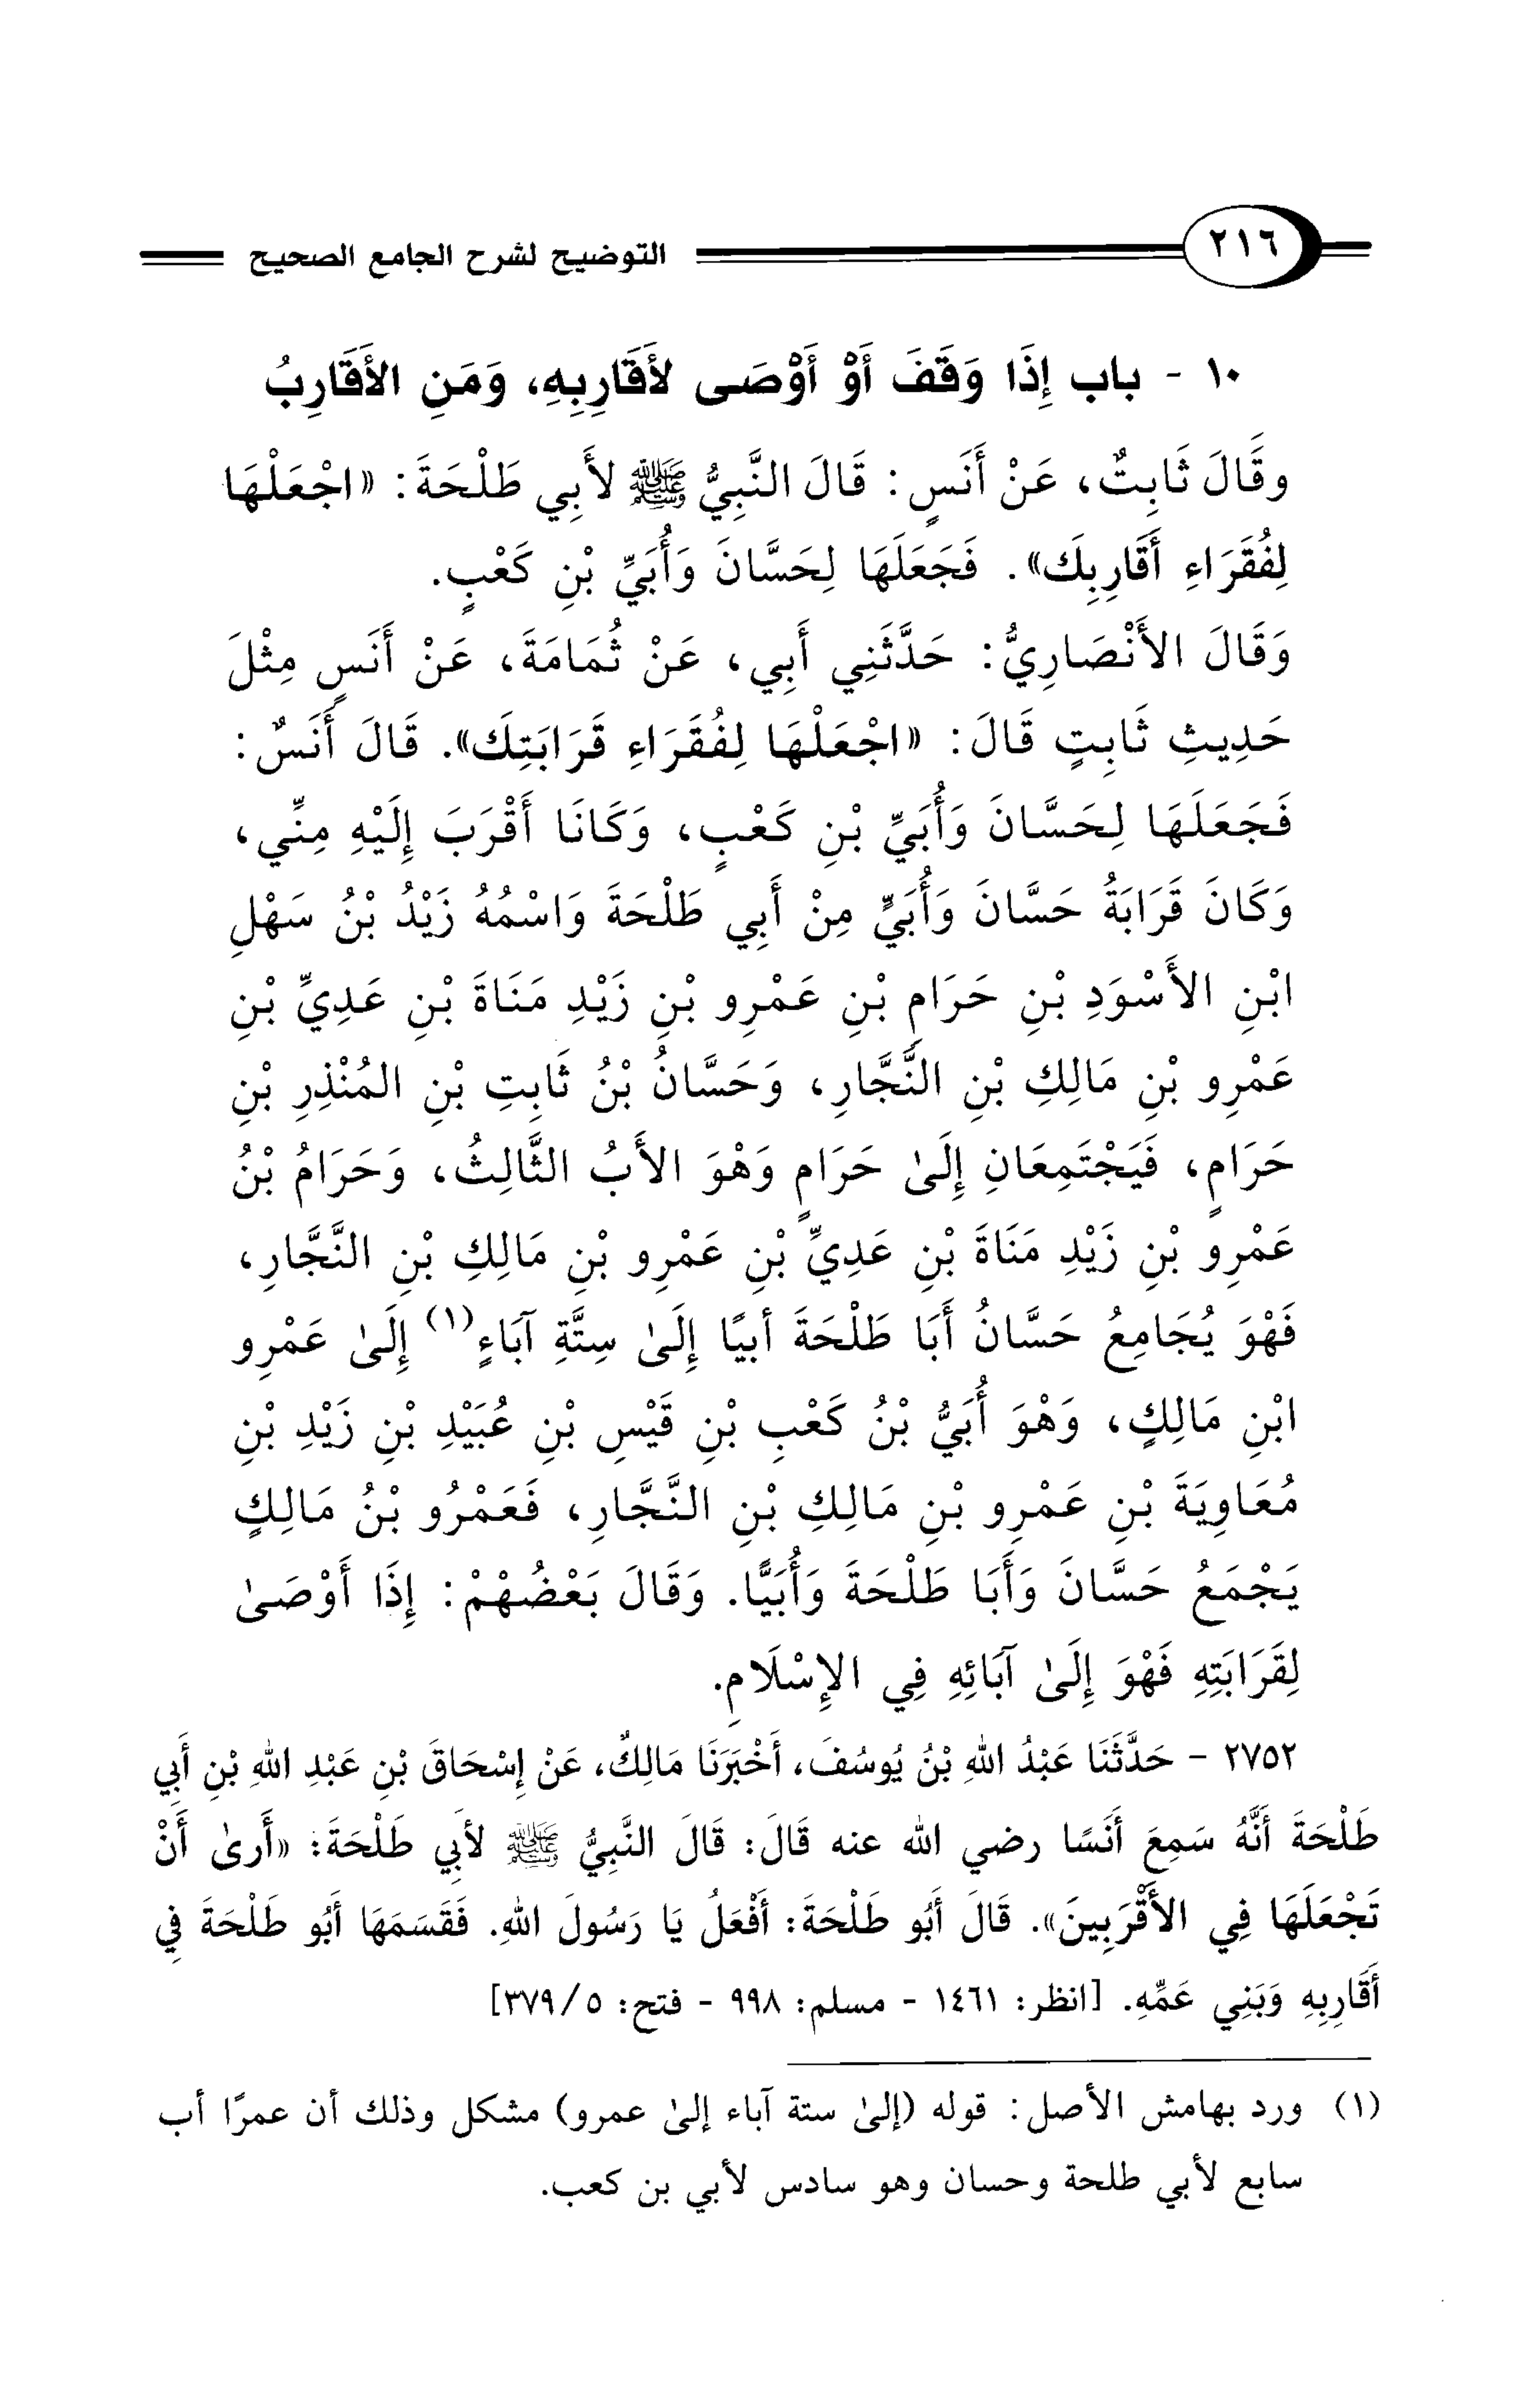 ٢١٦
التوضيح لشرح الجامع الصحيح
١٠ - باب إِذَا وَقَفَ أَوْ أَوْصَى لأَقَارِبِهِ، وَمَنِ الأَقَارِبُ
وقَالَ ثَابِتٌ، عَنْ أَنَسٍ: قَالَ النَّبِيُّ ﷺ لأَبِي طَلْحَةَ: «اجْعَلْهَا
لِفُقَرَاءِ أَقَارِبِكَ». فَجَعَلَهَا لِحَسَّانَ وَأُبَيِّ بْنِ كَعْبٍ.
وَقَالَ الأَنْصَارِيُّ: حَدَّثَنِي أَبِي، عَنْ ثُمَامَةَ، عَنْ أَنَسٍ مِثْلَ
حَدِيثِ ثَابِتٍ قَالَ: «اجْعَلْهَا لِفُقَرَاءِ قَرَابَتِكَ». قَالَ أَنَسٌ:
فَجَعَلَهَا لِحَسَّانَ وَأُبَيِّ بْنِ كَعْبٍ، وَكَانَا أَقْرَبَ إِلَيْهِ مِنِّي،
وَكَانَ قَرَابَةُ حَسَّانَ وَأُبَيٍّ مِنْ أَبِي طَلْحَةَ وَاسْمُهُ زَيْدُ بْنُ سَهْلِ
ابْنِ الأَسْوَدِ بْنِ حَرَامِ بْنِ عَمْرِو بْنِ زَيْدِ مَنَاةَ بْنِ عَدِيِّ بْنِ
عَمْرِو بْنِ مَالِكِ بْنِ النَّجَّارِ، وَحَسَّانُ بْنُ ثَابِتِ بْنِ المُنْذِرِ بْنِ
حَرَامٍ، فَيَجْتَمِعَانِ إِلَىٰ حَرَامٍ وَهْوَ الأَبُ الثَّالِثُ، وَحَرَامُ بْنُ
عَمْرِو بْنِ زَيْدِ مَنَاةَ بْنِ عَدِيِّ بْنِ عَمْرِو بْنِ مَالِكِ بْنِ النَّجَّارِ،
فَهْوَ يُجَامِعُ حَسَّانُ أَبَا طَلْحَةَ أبيًا إِلَىٰ سِتَّةِ آبَاءٍ(١) إِلَىٰ عَمْرِو
ابْنِ مَالِكٍ، وَهْوَ أُبَيُّ بْنُ كَعْبِ بْنِ قَيْسِ بْنِ عُبَيْدِ بْنِ زَيْدِ بْنِ
مُعَاوِيَةَ بْنِ عَمْرِو بْنِ مَالِكِ بْنِ النَّجَّارِ، فَعَمْرُو بْنُ مَالِكٍ
يَجْمَعُ حَسَّانَ وَأَبَا طَلْحَةَ وَأُبَيًّا. وَقَالَ بَعْضُهْمْ: إِذَا أَوْصَىٰ
لِقَرَابَتِهِ فَهْوَ إِلَىٰ آبَائِهِ فِي الإِسْلَامِ.
٢٧٥٢ - حَدَّثَنَا عَبْدُ اللهِ بْنُ يُوسُفَ، أَخْبَرَنَا مَالِكٌ، عَنْ إِسْحَاقَ بْنِ عَبْدِ اللهِ بْنِ أَبِي
طَلْحَةَ أَنَّهُ سَمِعَ أَنَسًا رضي الله عنه قَالَ: قَالَ النَّبِيُّ ﷺ لأَبِي طَلْحَةَ: «أَرىٰ أَنْ
تَجْعَلَهَا فِي الأَقْرَبِينَ». قَالَ أَبُو طَلْحَةَ: أَفْعَلُ يَا رَسُولَ اللهِ. فَقَسَمَهَا أَبُو طَلْحَةَ فِي
أَقَارِبِهِ وَبَنِي عَمِّهِ. [انظر: ١٤٦١ - مسلم: ٩٩٨ - فتح: ٣٧٩/٥]
(١) ورد بهامش الأصل: قوله (إلىٰ ستة آباء إلىٰ عمرو) مشكل وذلك أن عمرًا أب
سابع لأبي طلحة وحسان وهو سادس لأبي بن كعب.